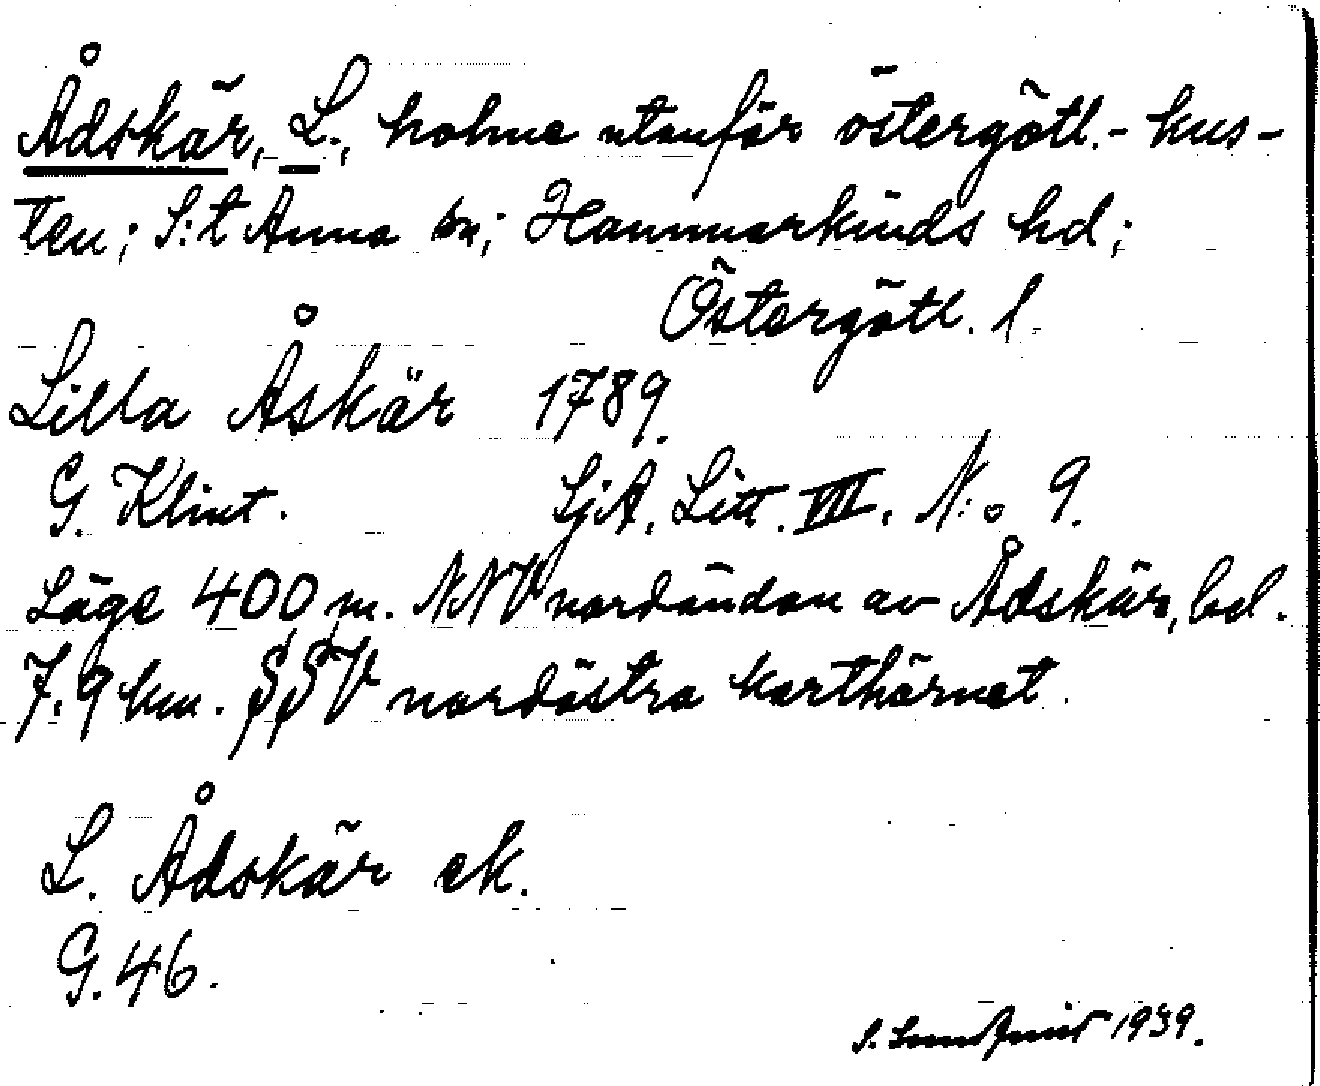 Ådskär, L., holme utanför östergötl.- kus-
ten; S:t Anna sn; Hammarkinds hd;
Östergötl. l
Lilla Åskär 1789.
G. Klint. SjA. Litt. VIII. N:o 9.
Läge 400 m. NNV nordändan av Ådskär, bd.
7.9 km. SSV nordöstra karthörnet.
L. Ådskär ek.
G.46.
S. Sundquist 1939.